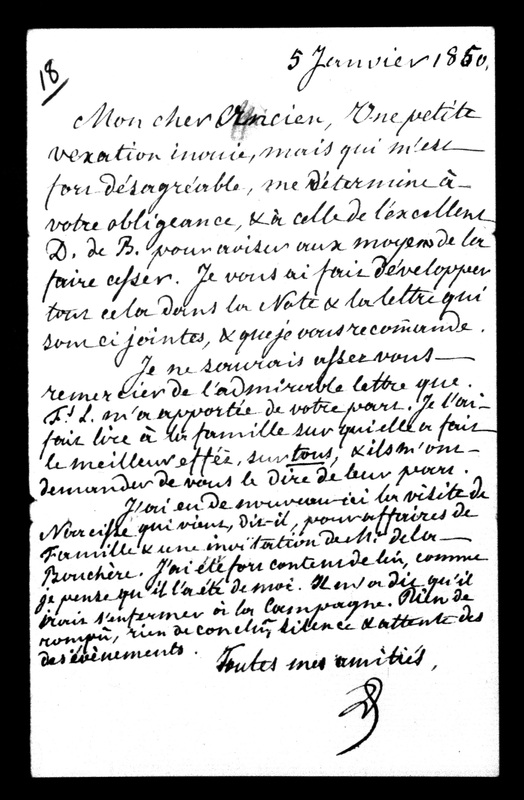 18
5 Janvier 1860.
Mon cher Ancien, Une petite
vexation inouie, mais qui m'est
fort désagréable, me détermine à
votre obligeance, & à celle de l'excellent
D. de B. pour aviser aux moyens de la
faire cesser. Je vous ai fait développer
tout cela dans la Note & la lettre qui
sont ci jointes, & que je vous recom̃ande.
Je ne saurais assez vous
remercier de l'admirable lettre que
Fd. L. m'a apportée de votre part. Je l'ai
fait lire à la famille sur qui elle a fait
le meilleur effét, sur tous, & ils m'ont
demander de vous le Dire de leur part.
J'ai eu de nouveau ici la visite de
Narcisse qui vient, dit-il, pour affaires de
Famille & une invitation de Mr. de la
Bouchère. J'ai été fort content de lui, comme
je pense qu'il l'a été de moi. Il m'a dit qu'il
irait s'enfermer à la Campagne. Rien de
rompu, rien de conclu, silence & attente des
des évènements.
Toutes mes amitiés,